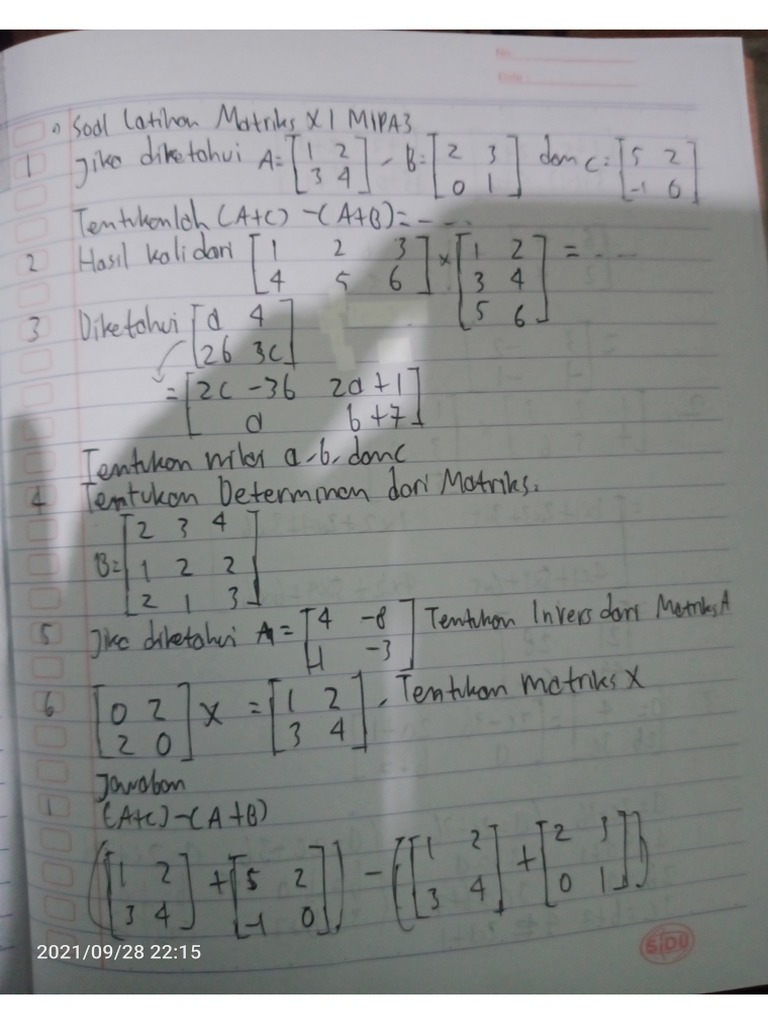 No.
Date
Soal Latihan Matriks XI MIPA3
1 Jika diketahui A=[1 2 - B=[2 3 dan C=[5 2
3 4] 0 1] -1 0]
Tentukanlah (A+C)-(A+B)=----
2 Hasil kali dari [1 2 3 × [1 2 = ---
4 5 6] 3 4
5 6]
3 Diketahui [a 4
2b 3c]
= [2c -3b 2a+1
a b+7]
Tentukan nilai a,b, dan c
4 Tentukan Determinan dari Matriks.
B= [2 3 4
1 2 2
2 1 3]
5 Jika diketahui A= [4 -8 Tentukan Invers dari Matriks A
-3]
6 [0 2 X = [1 2 , Tentukan matriks X
2 0] 3 4]
Jawaban
1 (A+C)-(A+B)
([1 2 + [5 2]) - ([1 2 + [2 3])
3 4] -1 0 3 4] 0 1
2021/09/28 22:15
SIDU